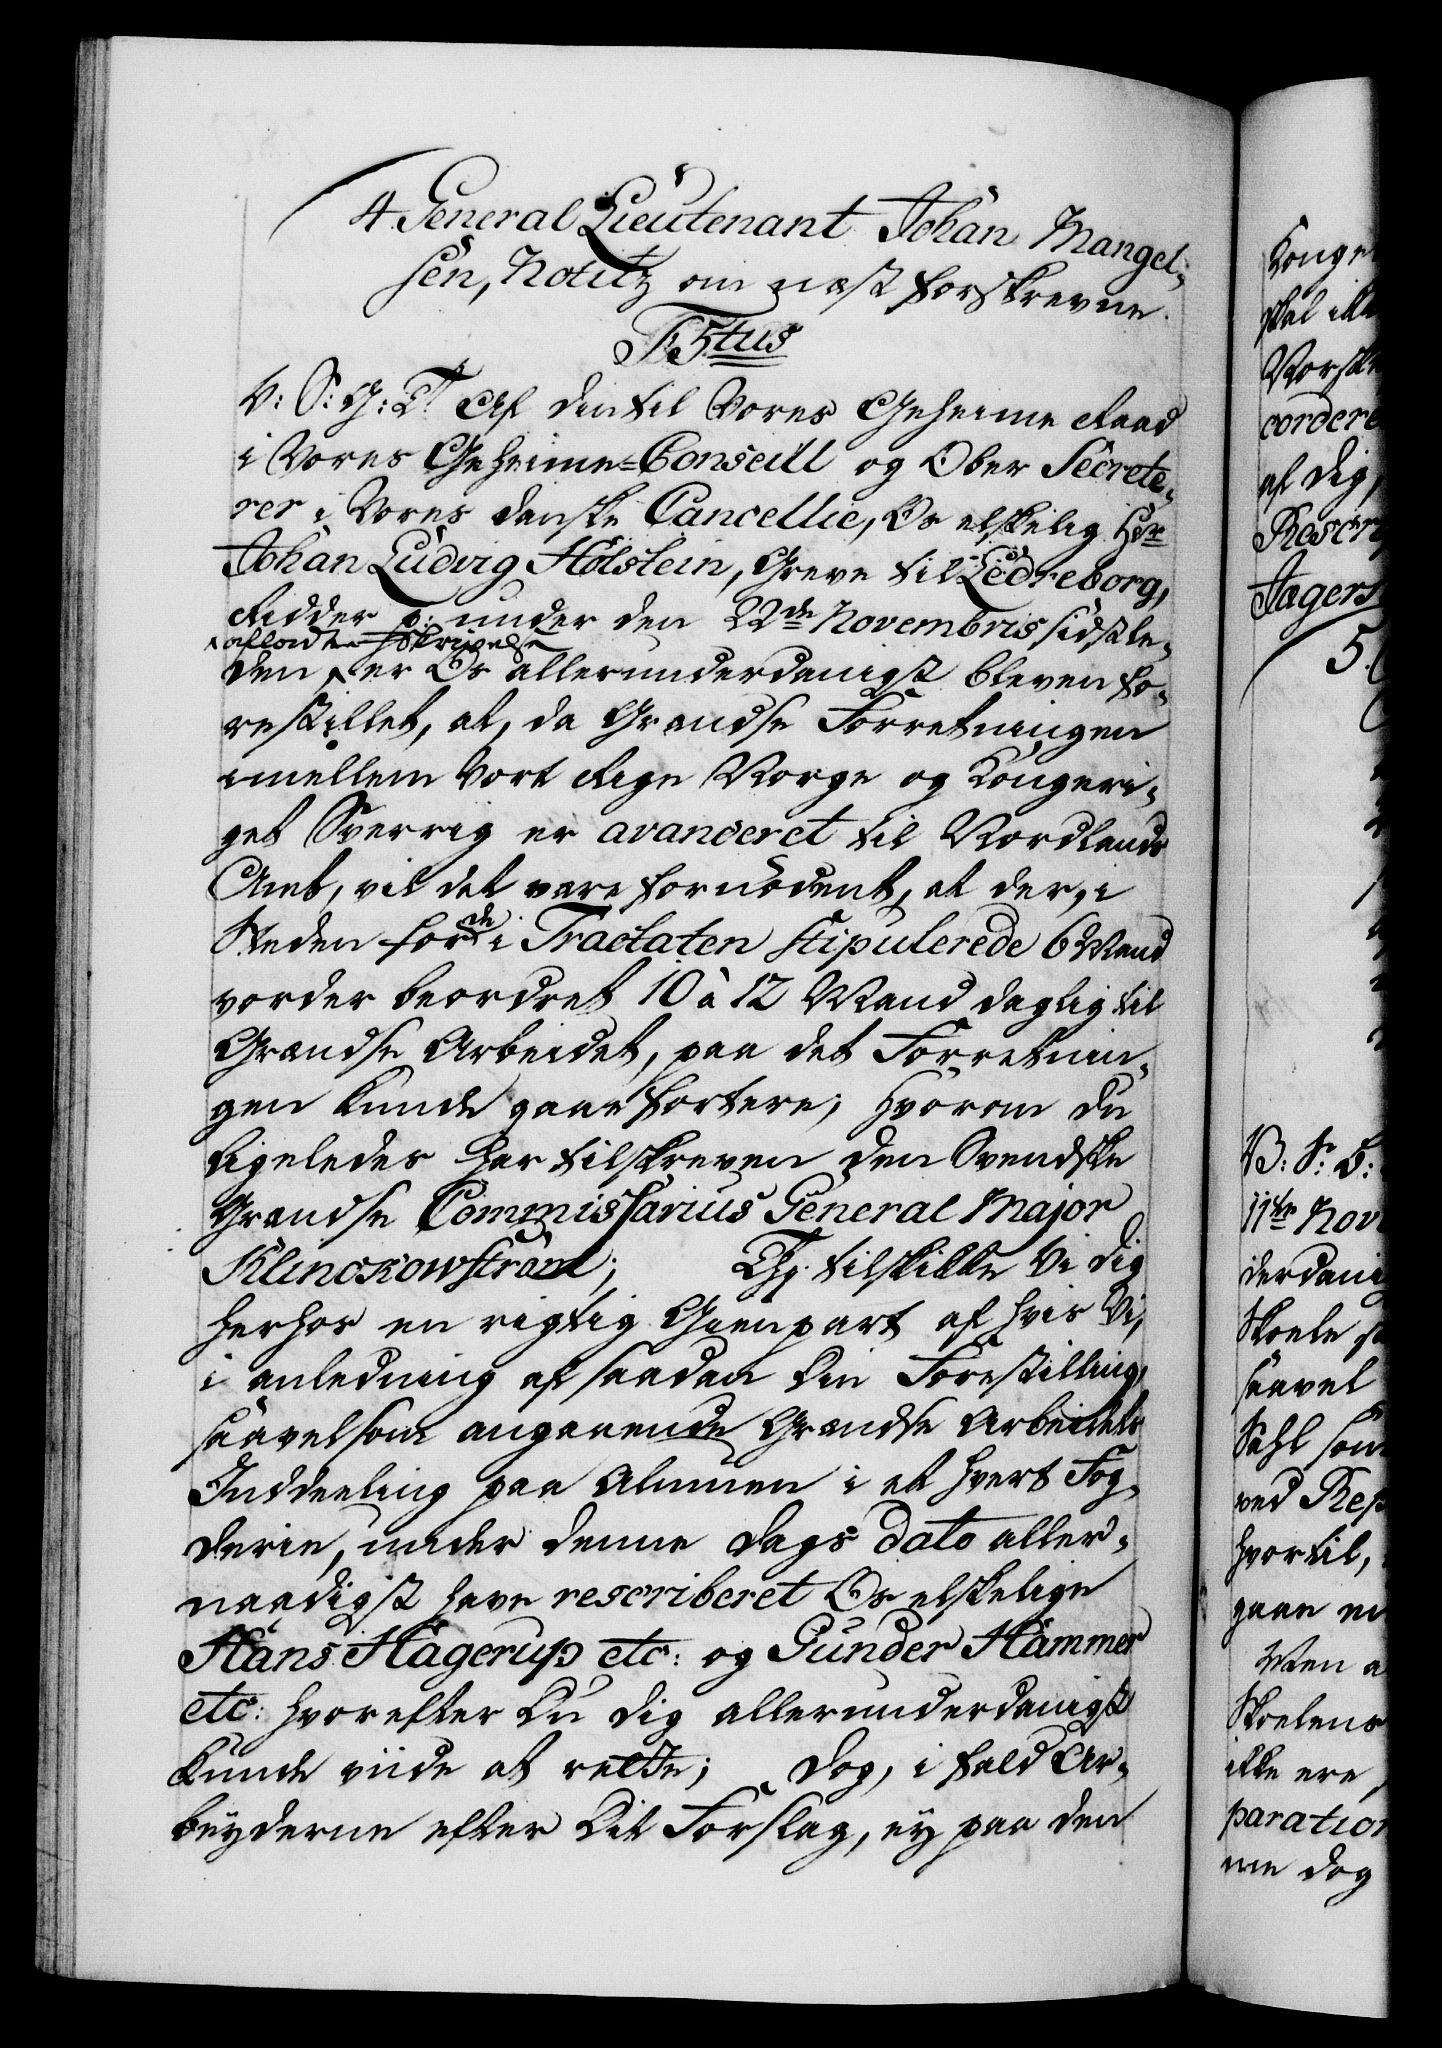 4. General Lieutenant Johan Mangel-
sen, Notitz om næst forskrevne.
F. 5tus
V: S: G: T. Af den til Vores Geheime Raad
i Vores Geheime-Conseill og Ober Secrete-
rer i Vores danske Cancellie, Os elskelig Hr
Johan Ludvig Holstein, Greve til Ledreborg,
Ridder p: under den 22de Novembris sidstle-
afladte Skrivelse
den er Os allerunderdanigst bleven fo-
restillet, at, da Grændse Forretningen
imellem Vort Rige Norge og Kongeri-
get Sverrig er avanceret til Nordlands
Amt, vil det være fornödent, at der, i
Steden for de i Tractaten stipulerede 6 Mand
vorder beordret 10 à 12 Mand daglig til
Grændse Arbeidet, paa det Forretnin-
gen kunde gaae fortere; Hvorom du
ligeledes har tilskreven den Svendske
Grændse Commissarius General Major
Klinckowström; Thj tilskikke Vi dig
herhos en rigtig Gienpart af hvis Vi,
i anledning af saadan Din Forestilling,
saavelsom angaaende Grændse Arbeidets
Inddeeling paa Almuen i et hvert Fog-
derie, under denne Dags Dato aller-
naadigst have rescriberet Os elskelige
Hans Hagerup etc: og Gunder Hammer
etc: hvorefter Du dig allerunderdanigst
kunde viide at rette; Dog, i fald Ar-
beyderne efter Dit Forslag, ey paa den
Konge
skal ikk
Vorsk
cordere
af Dig,
Rescri
Jagers
5.
V: S: B:
11te Nov
derdani
Skoele
saavel
Sahl som
ved Rep
hvortil,
gaae
Men a
Skoelens
ikke ere
paration
me dog